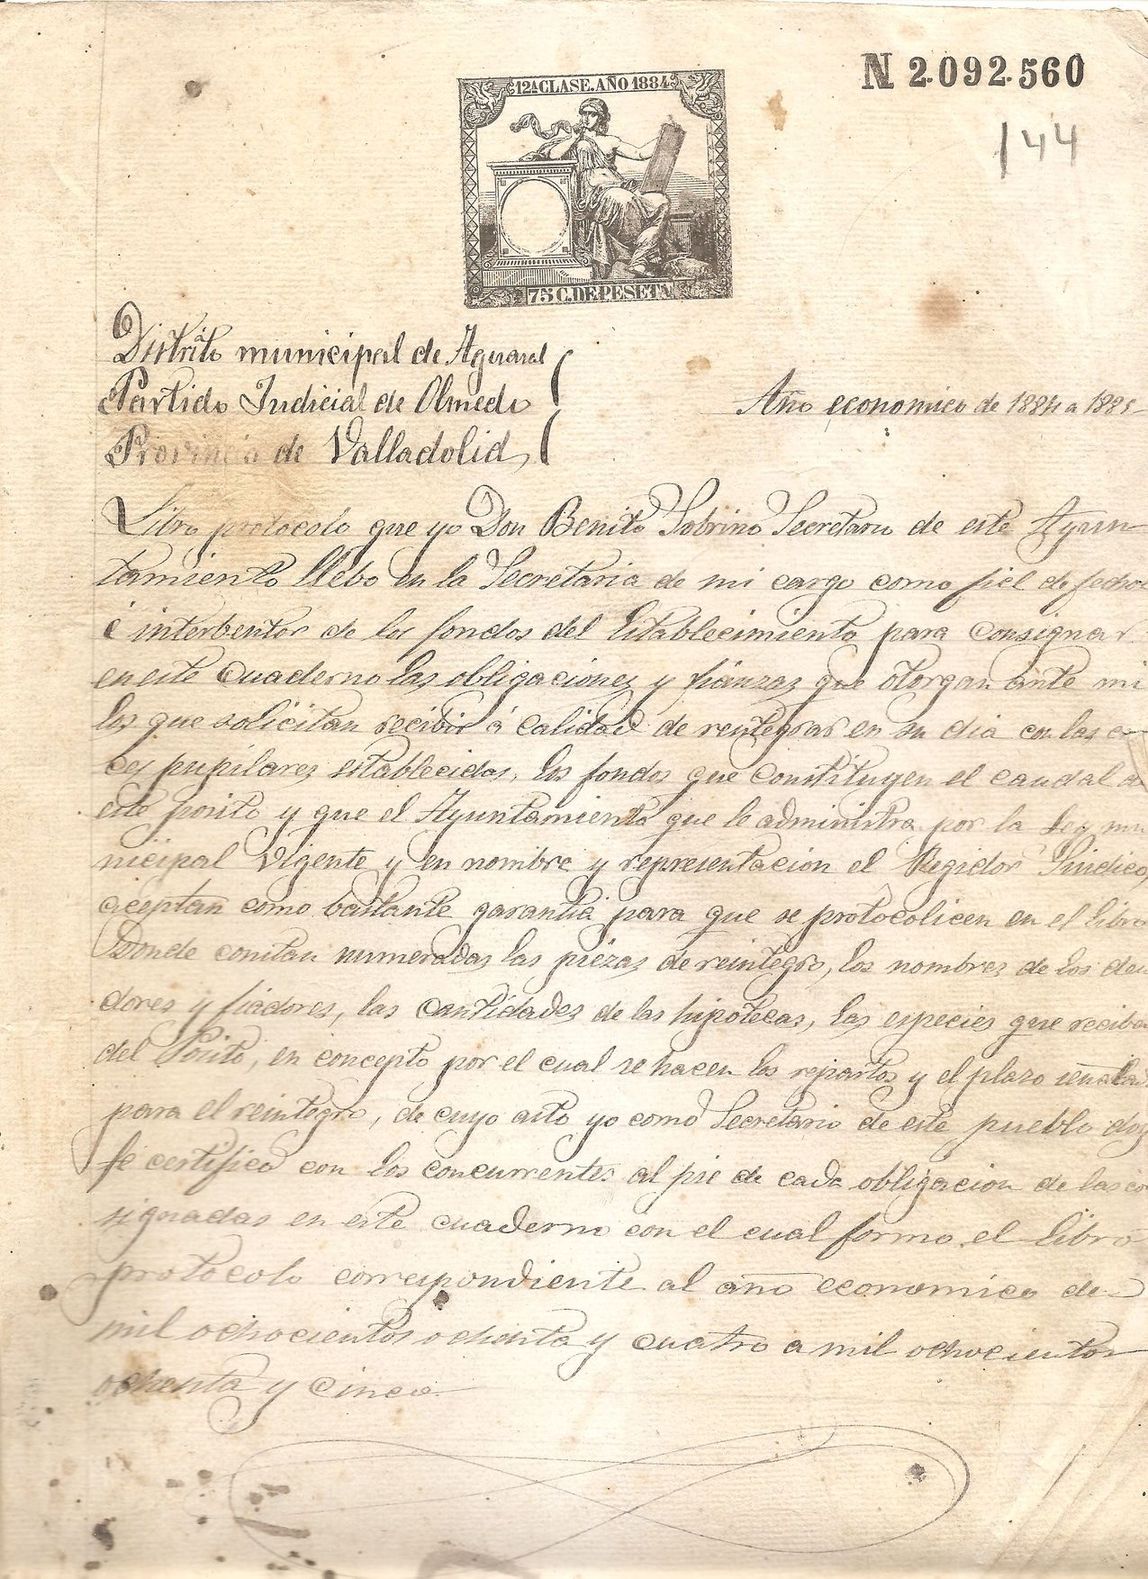 12ª CLASE. AÑO 1884
N 2.092.560
144
75 C. DE PESETA
Distrito municipal de Aguasal
Partido Judicial de Olmedo
Provincia de Valladolid
Año economico de 1884 a 1885
Libro protocolo que yo Don Benito Sobrino Secretario de este Ayun-
tamiento llebo en la Secretaria de mi cargo como fiel de fechos
é interbentor de los fondos del Establecimiento para consignar
en este cuaderno las obligaciones y fianzas que otorgan ante mi
los que solicitan recibir á calidad de reintegrar en su dia con las
ces pupilares establecidas, los fondos que constituyen el caudal de
este posito y que el Ayuntamiento que le administra por la Ley mu
nicipal vigente y en nombre y representacion el Regidor Sindico,
aceptan como bastante garantia para que se protocolicen en el libro
Donde constan numeradas las piezas de reintegro, los nombres de los deu
dores y fiadores, las cantidades de las hipotecas, las especies que reciben
del Posito, en concepto por el cual se hacen los repartos y el plazo señala
para el reintegro, de cuyo acto yo como Secretario de este pueblo doy
fé certifico con los concurrentes al pie de cada obligacion de las con
signadas en este cuaderno con el cual formo el libro
protocolo correspondiente al año economico de
mil ochocientos ochenta y cuatro a mil ochocientos
ochenta y cinco